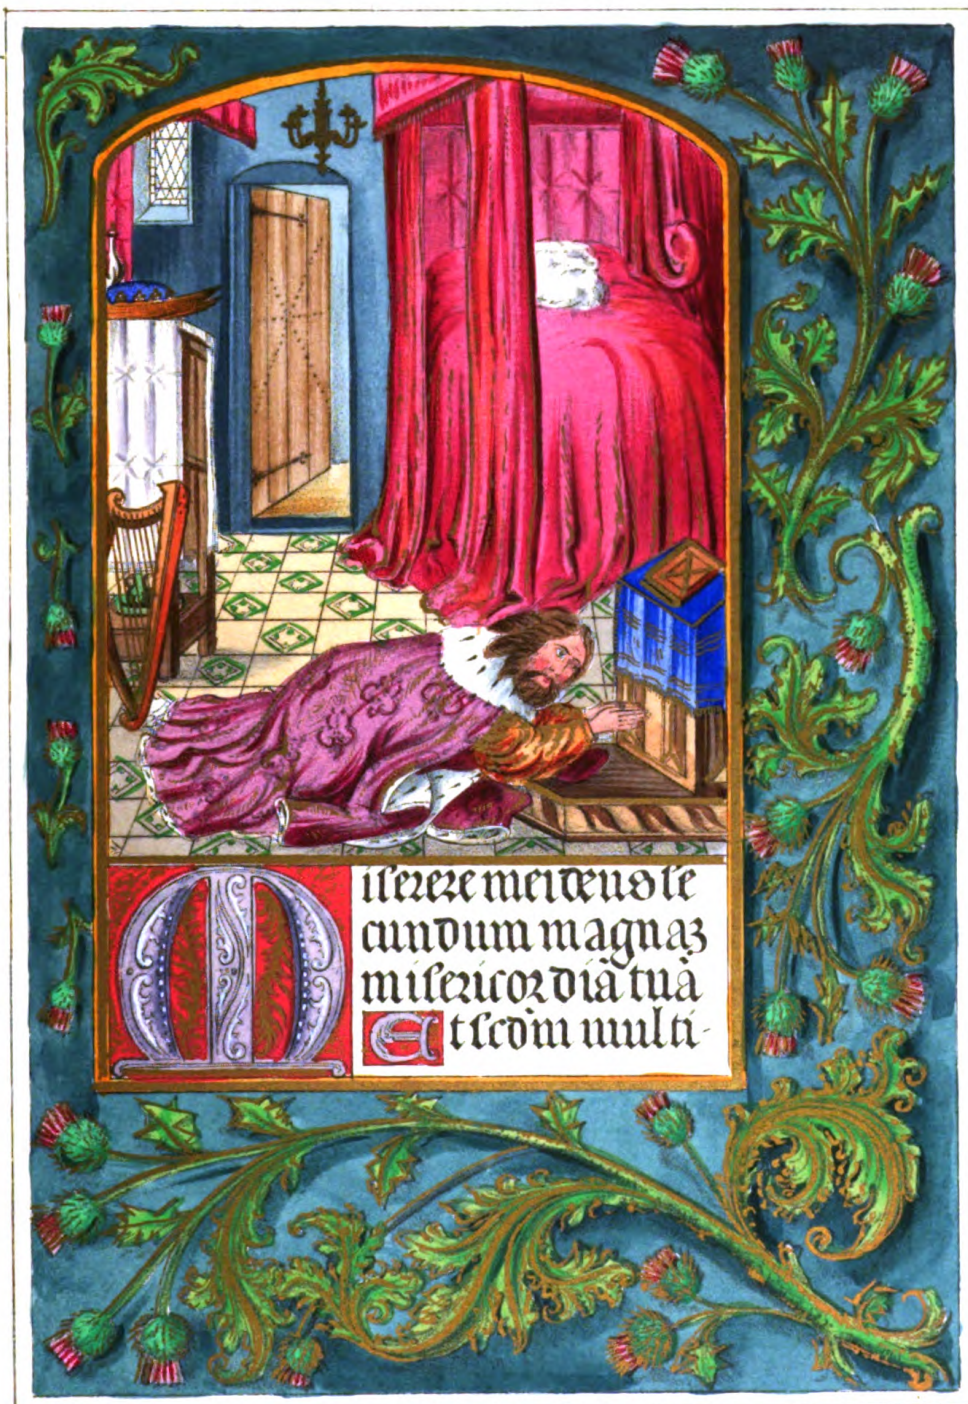 Miserere mei deus se
cundum magnaz
misericordiā tuā
Et scdm̄ multi-